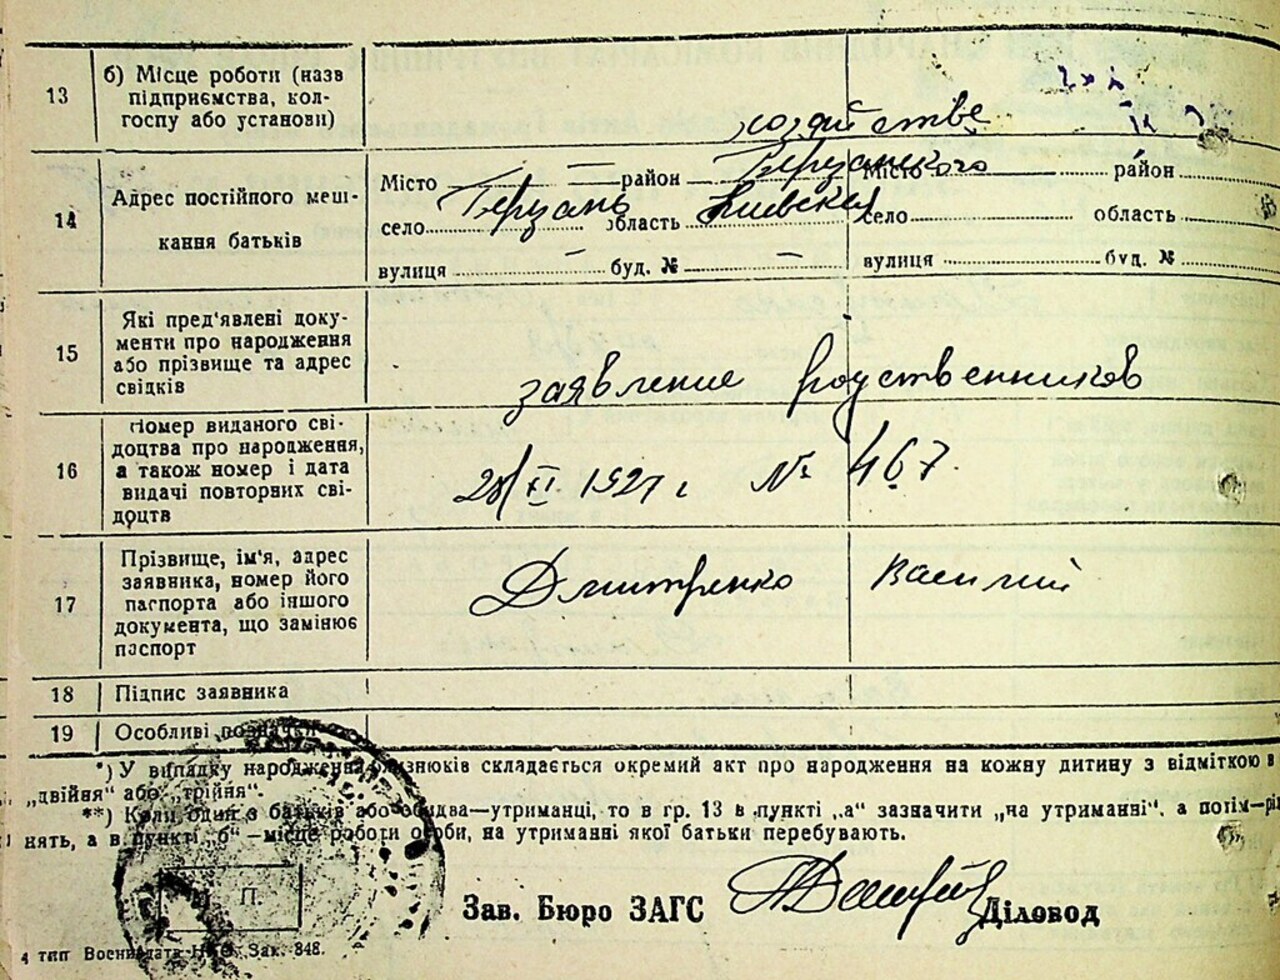 13
б) Місце роботи (назв
підприємства, кол-
госпу або установи)
хозяйстве
14
Адрес постійного меш-
кання батьків
Місто район Місто район
село Берзань область Киевская село область
вулиця — буд. № — вулиця буд. №
15
Які пред'явлені доку-
менти про народження
або прізвище та адрес
свідків
заявление родственников
16
Номер виданого сві-
доцтва про народження,
а також номер і дата
видачі повторних сві-
доцтв
№ 467.
17
Прізвище, ім'я, адрес
заявника, номер його
паспорта або іншого
документа, що замінює
паспорт
Дмитренко Василий
18 Підпис заявника
19 Особливі позначки
*) У випадку народження близнюків складається окремий акт про народження на кожну дитину з відміткою в
„двійня" або „трійня".
**) Коли один з батьків або обидва—утриманці, то в гр. 13 в пункті „а" зазначити „на утриманні", а потім—
нять, а в пункті „б"—місце роботи особи, на утриманні якої батьки перебувають.
П.
Зав. Бюро ЗАГС Діловод
4 тип Воениздата НКО Зак. 848.